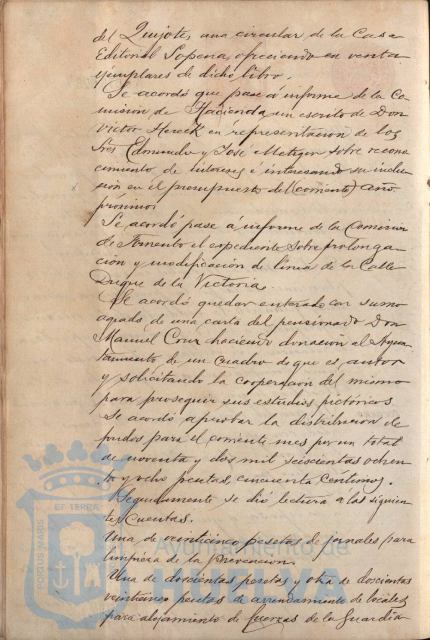 del Quijote, una circular de la Casa
Editorial Sopena, ofreciendo en venta
ejemplares de dicho libro.
Se acordó que pase á informe de la Co-
misión de Hacienda un escrito de Don
Victor en representacion de los
Sres Edmundo y Jose Metzger sobre recono-
cimiento de intereses é interesando su inclu-
sión en el presupuesto del (corriente) año
próximo.
Se acordó pase á informe de la Comision
de Fomento el expediente sobre prolonga-
ción y modificación de linea de la Calle
Duque de la Victoria.
Se acordó quedar enterado con sumo
agrado de una carta del pensionado Don
Manuel Cruz haciendo donacion al Ayun-
tamiento de un cuadro de que es autor
y solicitando la cooperacion del mismo
para proseguir sus estudios pictóricos
Se acordó aprobar la distribucion de
fondos para el corriente mes por un total
de noventa y dos mil seiscientas ochen-
ta y ocho pesetas, cincuenta céntimos.
Seguidamente se dió lectura a las siguien-
tes cuentas.
Una de veinticinco pesetas de jornales para
limpieza de la Prevencion.
Una de doscientas pesetas y otra de doscientas
veinticinco pesetas de arrendamiento de locales
para alojamiento de fuerzas de la Guardia
PORTUS MARIS
ET TERRA
Ayuntamiento de